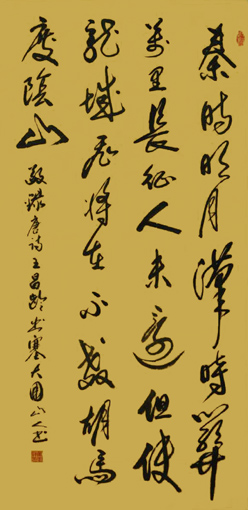 秦時明月漢時關
萬里長征人未還但使
龍城飛將在不教胡馬
度陰山 敬録唐詩王昌齡出塞 山人書